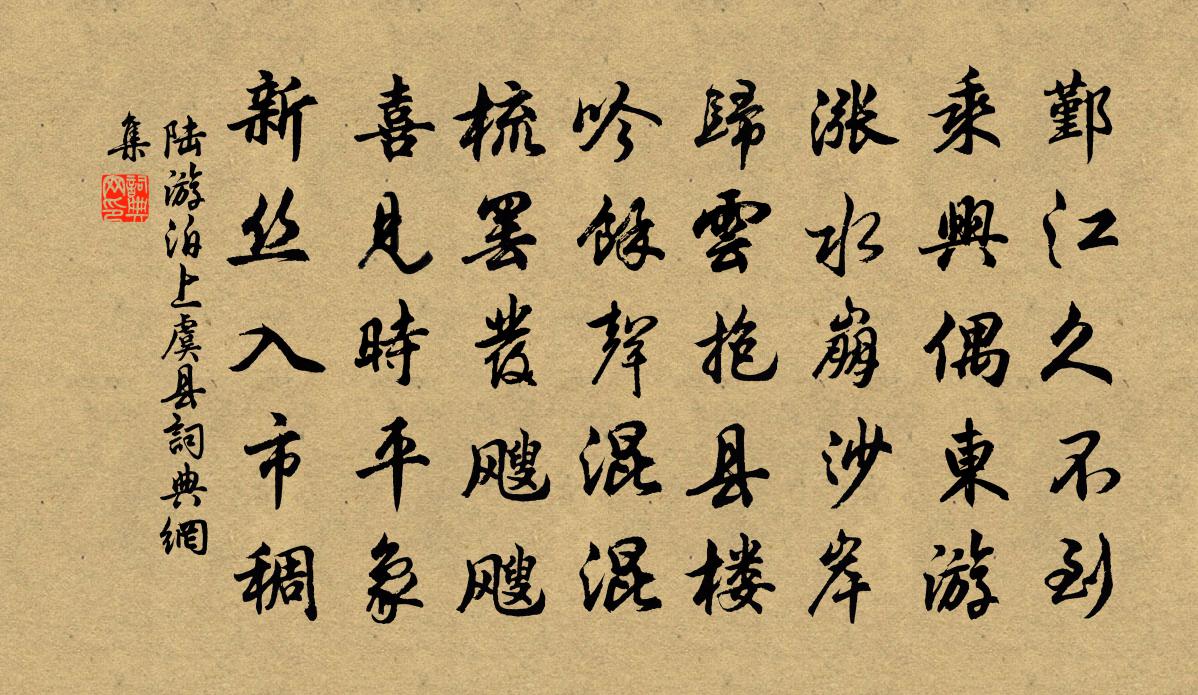 鄞江久不到
乘興偶東游
漲水崩沙岸
歸雲抱县楼
吟餘聲混混
梳罢發飕飕
喜見時平象
新丝入市稠
陆游泊上虞县詞典網
集
詞典网印